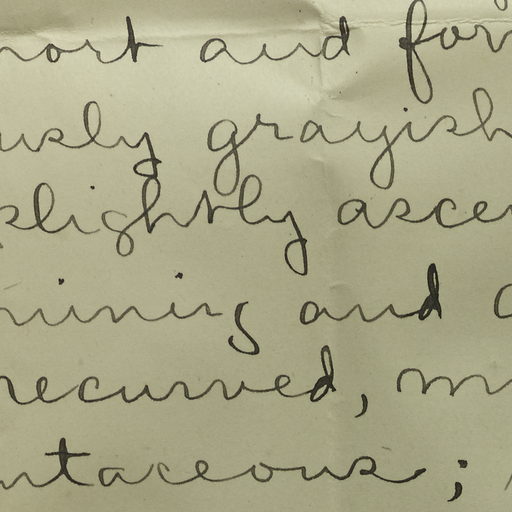 nort and for
usly grayish
slightly ascen
nining and
recurved, m
ntaceous;